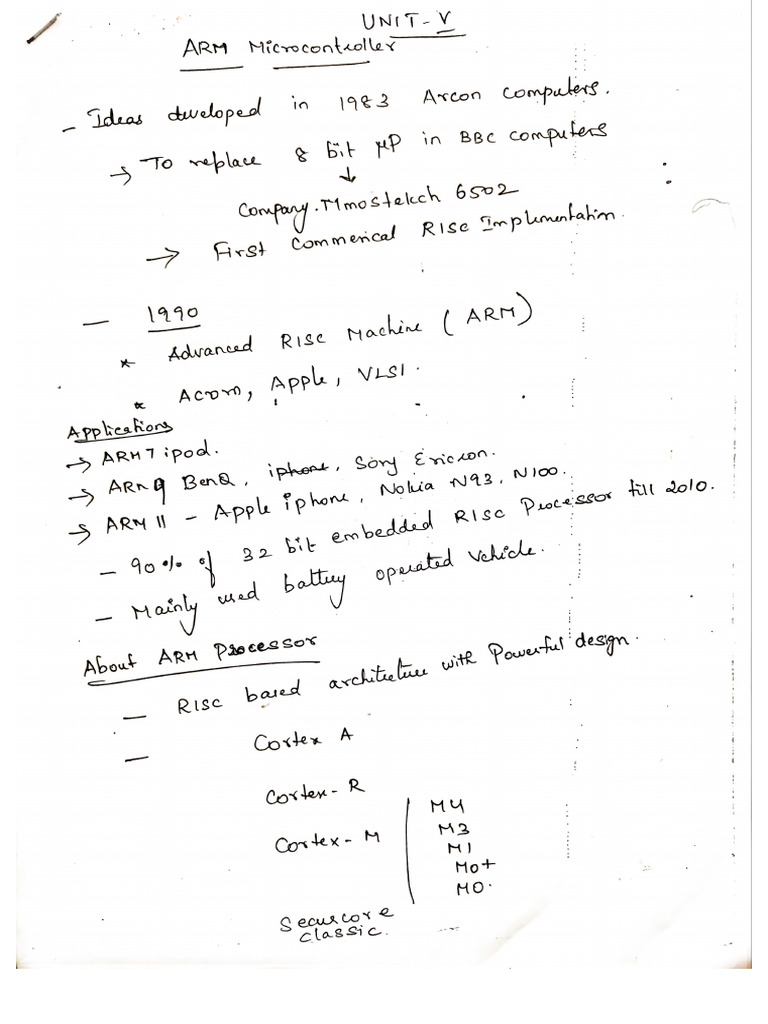 UNIT-V
ARM Microcontroller
- Ideas developed in 1983 Arcon computers.
→ To replace 8 bit μP in BBC computers
↓
Company. Mmostekch 6502
→ First Commerical RISC Implementation.
- 1990
* Advanced RISC Machine (ARM)
* Acorn, Apple, VLSI.
Applications
→ ARM7 ipod.
→ ARM9 BenQ, iphone, Sony Ericson.
→ ARM 11 - Apple iphone, Nokia N93, N100.
- 90% of 32 bit embedded RISC Processor till 2010.
- Mainly used battery operated Vehicle.
About ARM Processor
- RISC based architecture with Powerful design.
- Cortex A
Cortex-R
Cortex-M
M4
M3
M1
M0+
M0.
Securcore
Classic.